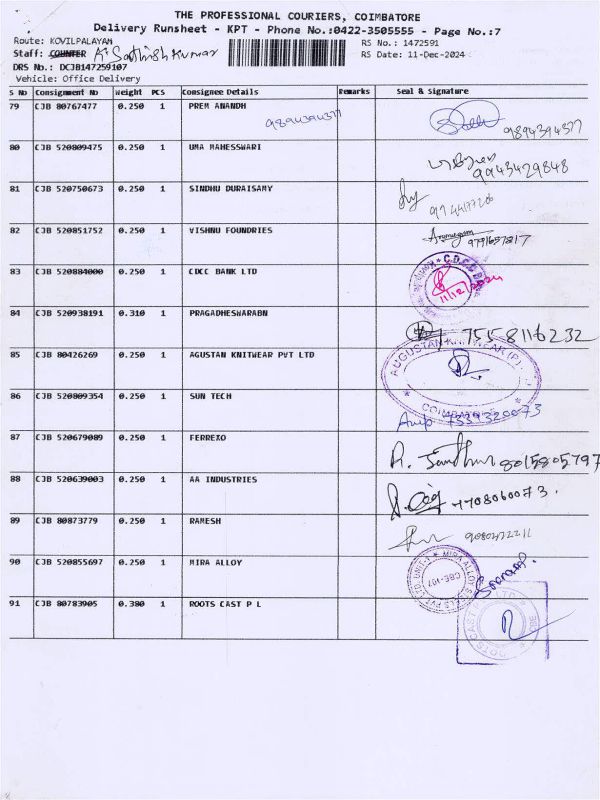 THE PROFESSIONAL COURIERS, COIMBATORE
Delivery Runsheet - KPT - Phone No.:0422-3505555 - Page No.:7
Route: KOVILPALAYAM RS No.: 1472591
Staff: COUNTER A. Sathish Kumar RS Date: 11-Dec-2024
DRS No.: DCJB147259107
Vehicle: Office Delivery
S No Consignment No Weight PCS Consignee Details Remarks Seal & Signature
79 CJB 80767477 0.250 1 PREM ANANDH
9894394377 9894394377
80 CJB 520809475 0.250 1 UMA MAHESSWARI
9943429848
81 CJB 520750673 0.250 1 SINDHU DURAISAMY
82 CJB 520851752 0.250 1 VISHNU FOUNDRIES
Arumugam 9791657817
83 CJB 520884000 0.250 1 CDCC BANK LTD
11/12/2024
84 CJB 520938191 0.310 1 PRAGADHESWARABN
7558116232
85 CJB 80426269 0.250 1 AGUSTAN KNITWEAR PVT LTD
AUGUSTAN KNITWEAR (P) COIMBATORE
86 CJB 520809354 0.250 1 SUN TECH
7339320073
87 CJB 520679089 0.250 1 FERREXO
R. 8015805797
88 CJB 520639003 0.250 1 AA INDUSTRIES
7708060073.
89 CJB 80873779 0.250 1 RAMESH
9080422211
90 CJB 520855697 0.250 1 MIRA ALLOY
MIRA ALLOY STEELS PVT LTD, UNIT-1 CBE-107
91 CJB 80783905 0.380 1 ROOTS CAST P L
ROOTS CAST